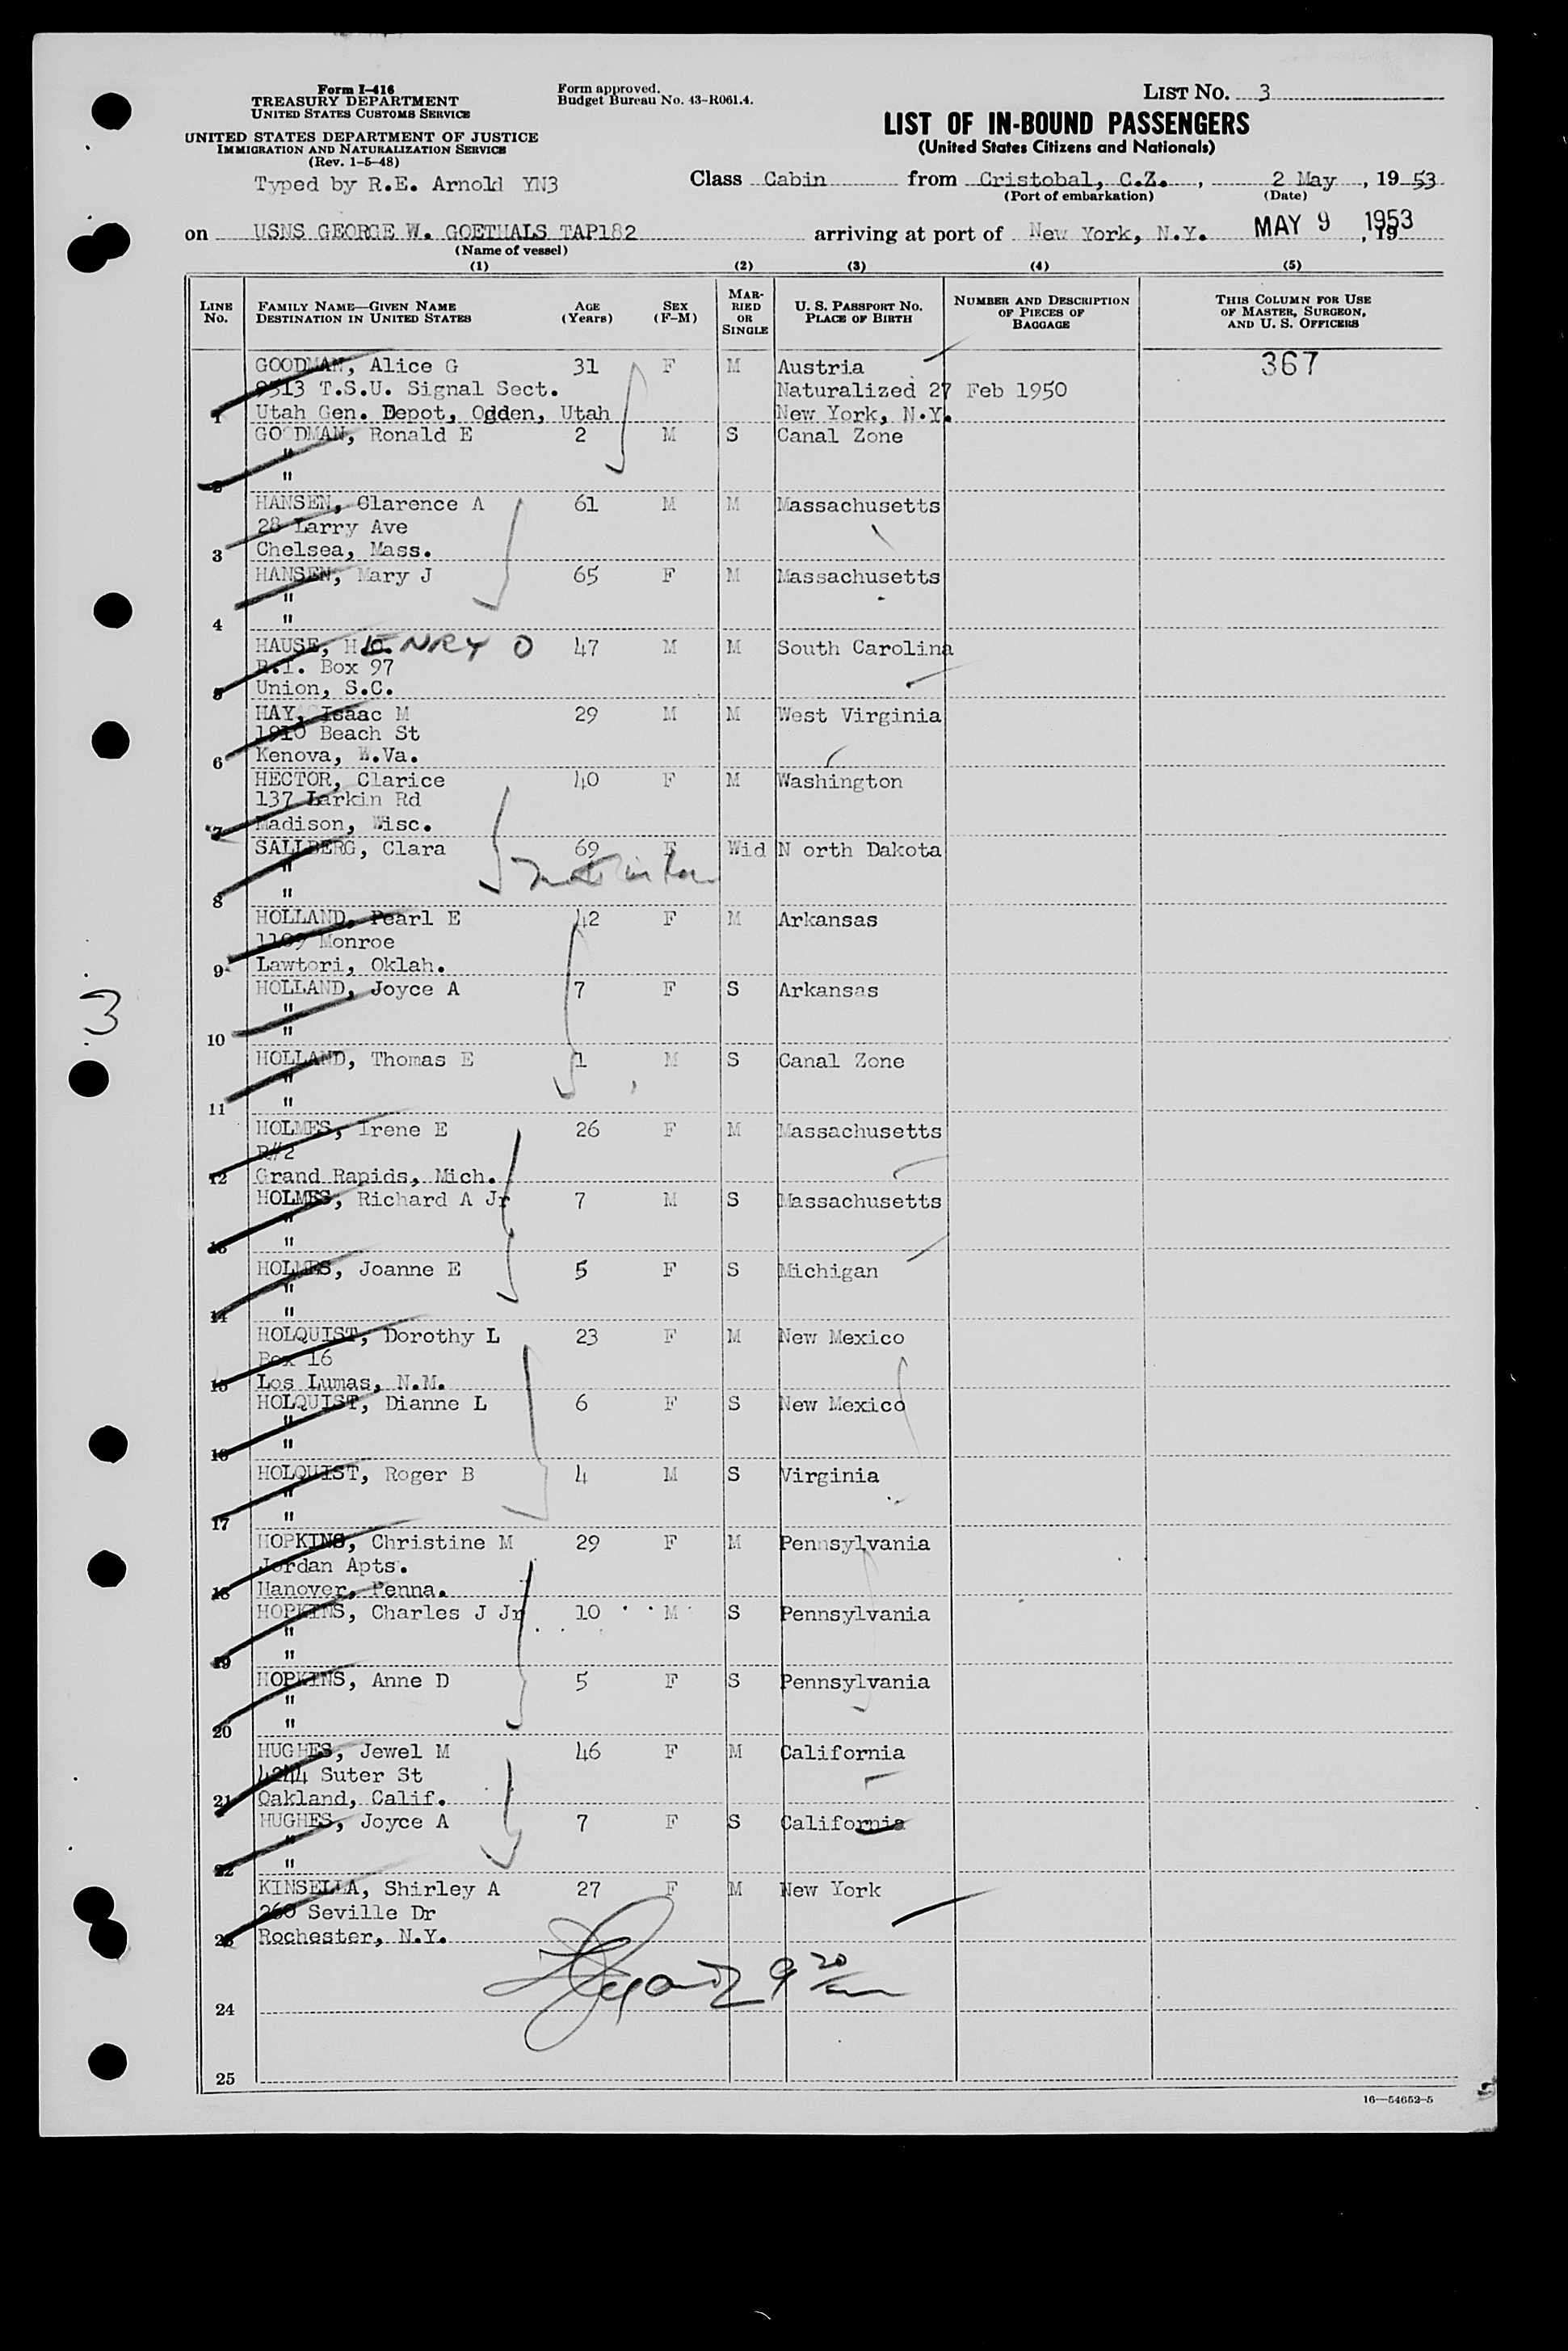 Form I-416
TREASURY DEPARTMENT
UNITED STATES CUSTOMS SERVICE
UNITED STATES DEPARTMENT OF JUSTICE
IMMIGRATION AND NATURALIZATION SERVICE
(Rev. 1-5-48)
Typed by R.E. Arnold YN3
Form approved.
Budget Bureau No. 43-R061.4.
LIST No. 3
LIST OF IN-BOUND PASSENGERS
(United States Citizens and Nationals)
Class Cabin from Cristobal, C.Z., 2 May, 19 53
(Port of embarkation) (Date)
on USNS GEORGE W. GOETHALS TAP182 arriving at port of New York, N.Y. MAY 9 1953, 19
(Name of vessel)
(1) (2) (3) (4) (5)
LINE No. FAMILY NAME—GIVEN NAME DESTINATION IN UNITED STATES AGE (Years) SEX (F-M) MARRIED OR SINGLE U. S. PASSPORT No. PLACE OF BIRTH NUMBER AND DESCRIPTION OF PIECES OF BAGGAGE THIS COLUMN FOR USE OF MASTER, SURGEON, AND U. S. OFFICERS
GOODMAN, Alice G 31 F M Austria 367
9313 T.S.U. Signal Sect. Naturalized 27 Feb 1950
1 Utah Gen. Depot, Ogden, Utah New York, N.Y.
GOODMAN, Ronald E 2 M S Canal Zone
"
2 "
HANSEN, Clarence A 61 M M Massachusetts
28 Larry Ave
3 Chelsea, Mass.
HANSEN, Mary J 65 F M Massachusetts
"
4 "
HAUSE, H ENRY O 47 M M South Carolina
R.1. Box 97
5 Union, S.C.
HAY, Isaac M 29 M M West Virginia
1910 Beach St
6 Kenova, W.Va.
HECTOR, Clarice 40 F M Washington
137 Larkin Rd
7 Madison, Wisc.
SALLBERG, Clara 69 F Wid N orth Dakota
"
8 "
HOLLAND, Pearl E 42 F M Arkansas
1109 Monroe
9 Lawtori, Oklah.
HOLLAND, Joyce A 7 F S Arkansas
"
10 "
HOLLAND, Thomas E 1 M S Canal Zone
"
11 "
HOLMES, Irene E 26 F M Massachusetts
R#2
12 Grand Rapids, Mich.
HOLMES, Richard A Jr 7 M S Massachusetts
"
13 "
HOLMES, Joanne E 5 F S Michigan
"
14 "
HOLQUIST, Dorothy L 23 F M New Mexico
Box 16
15 Los Lumas, N.M.
HOLQUIST, Dianne L 6 F S New Mexico
"
16 "
HOLQUIST, Roger B 4 M S Virginia
"
17 "
HOPKINS, Christine M 29 F M Pennsylvania
Jordan Apts.
18 Hanover, Penna.
HOPKINS, Charles J Jr 10 M S Pennsylvania
"
19 "
HOPKINS, Anne D 5 F S Pennsylvania
"
20 "
HUGHES, Jewel M 46 F M California
4244 Suter St
21 Oakland, Calif.
HUGHES, Joyce A 7 F S California
"
22 "
KINSELLA, Shirley A 27 F M New York
260 Seville Dr
23 Rochester, N.Y.
9 20
24
25
16—54652-5
3